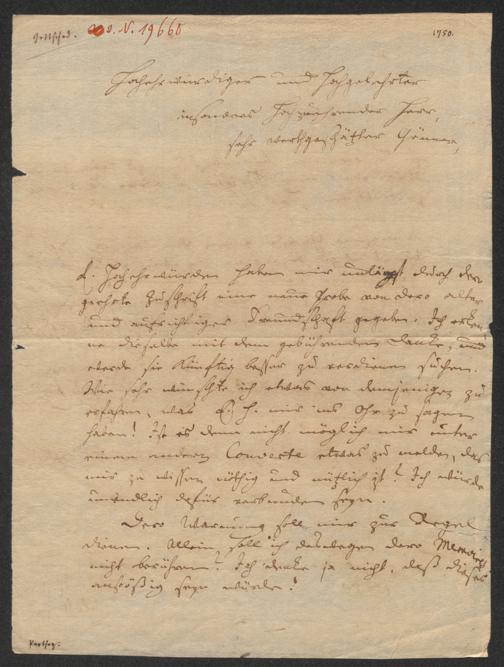 Gottsched.
N. 19660
1750.
Hochehrwürdiger und Hochgelahrter
insonders Hochzuehrender Herr,
sehr werthgeschätzter Gönner,
E. Hochehrwürden haben mir unlängst durch dero
geehrte Zuschrift eine neue Probe von dero alten
und aufrichtigen Freundschaft gegeben. Ich erken-
ne dieselbe mit dem gebührenden Danke, und
werde sie künftig besser zu verdienen suchen.
Wie sehr wünschte ich etwas von demjenigen zu
erfahren, was E. H. mir ins Ohr zu sagen
haben! Ist es denn nicht möglich mir unter
einem andern Couverte etwas zu melden, das
mir zu wissen nöthig und nützlich ist? Ich würde
unendlich dafür verbunden seyn.
Dero Warnung soll mir zur Regel
dienen. Allein soll ich deswegen dero
nicht berühren? Ich denke ja nicht, daß dieses
anstößig seyn würde!